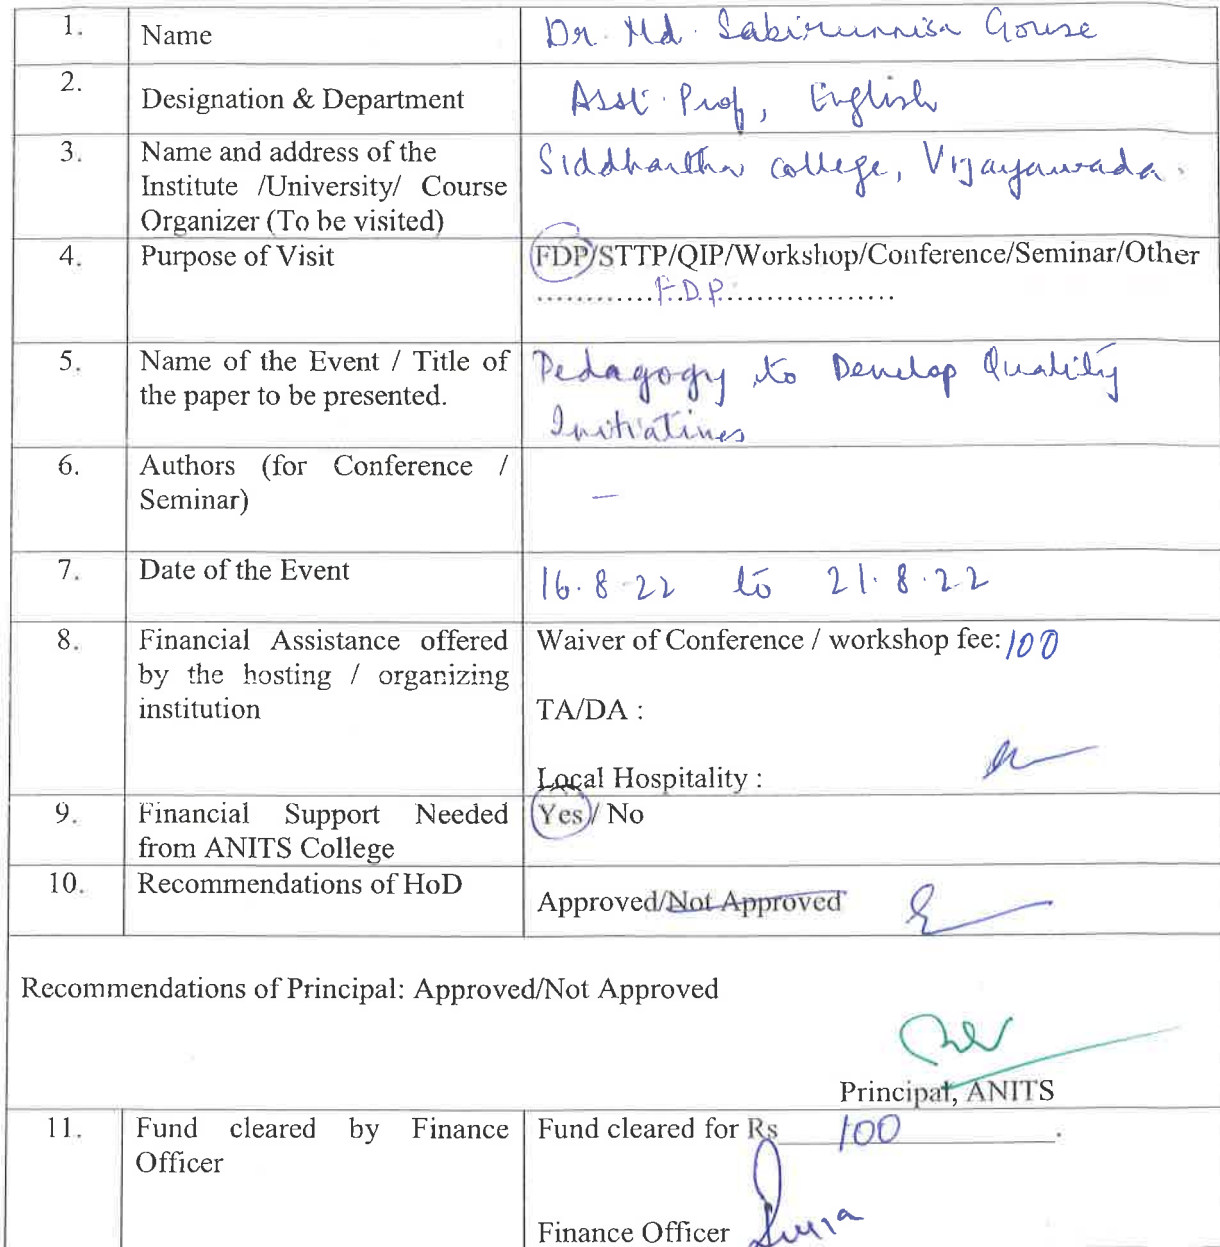 1. Name Dr. Md. Sabirunnisa Gouse
2. Designation & Department Asst. Prof, English
3. Name and address of the Institute /University/ Course Organizer (To be visited) Siddhartha college, Vijayawada.
4. Purpose of Visit FDP/STTP/QIP/Workshop/Conference/Seminar/Other
............F.D.P..................
5. Name of the Event / Title of the paper to be presented. Pedagogy to Develop Quality
Initiatives
6. Authors (for Conference / Seminar) –
7. Date of the Event 16.8.22 to 21.8.22
8. Financial Assistance offered by the hosting / organizing institution Waiver of Conference / workshop fee: 100
TA/DA :
Local Hospitality :
9. Financial Support Needed from ANITS College Yes / No
10. Recommendations of HoD Approved/Not Approved
Recommendations of Principal: Approved/Not Approved
Principal, ANITS
11. Fund cleared by Finance Officer Fund cleared for Rs 100.
Finance Officer